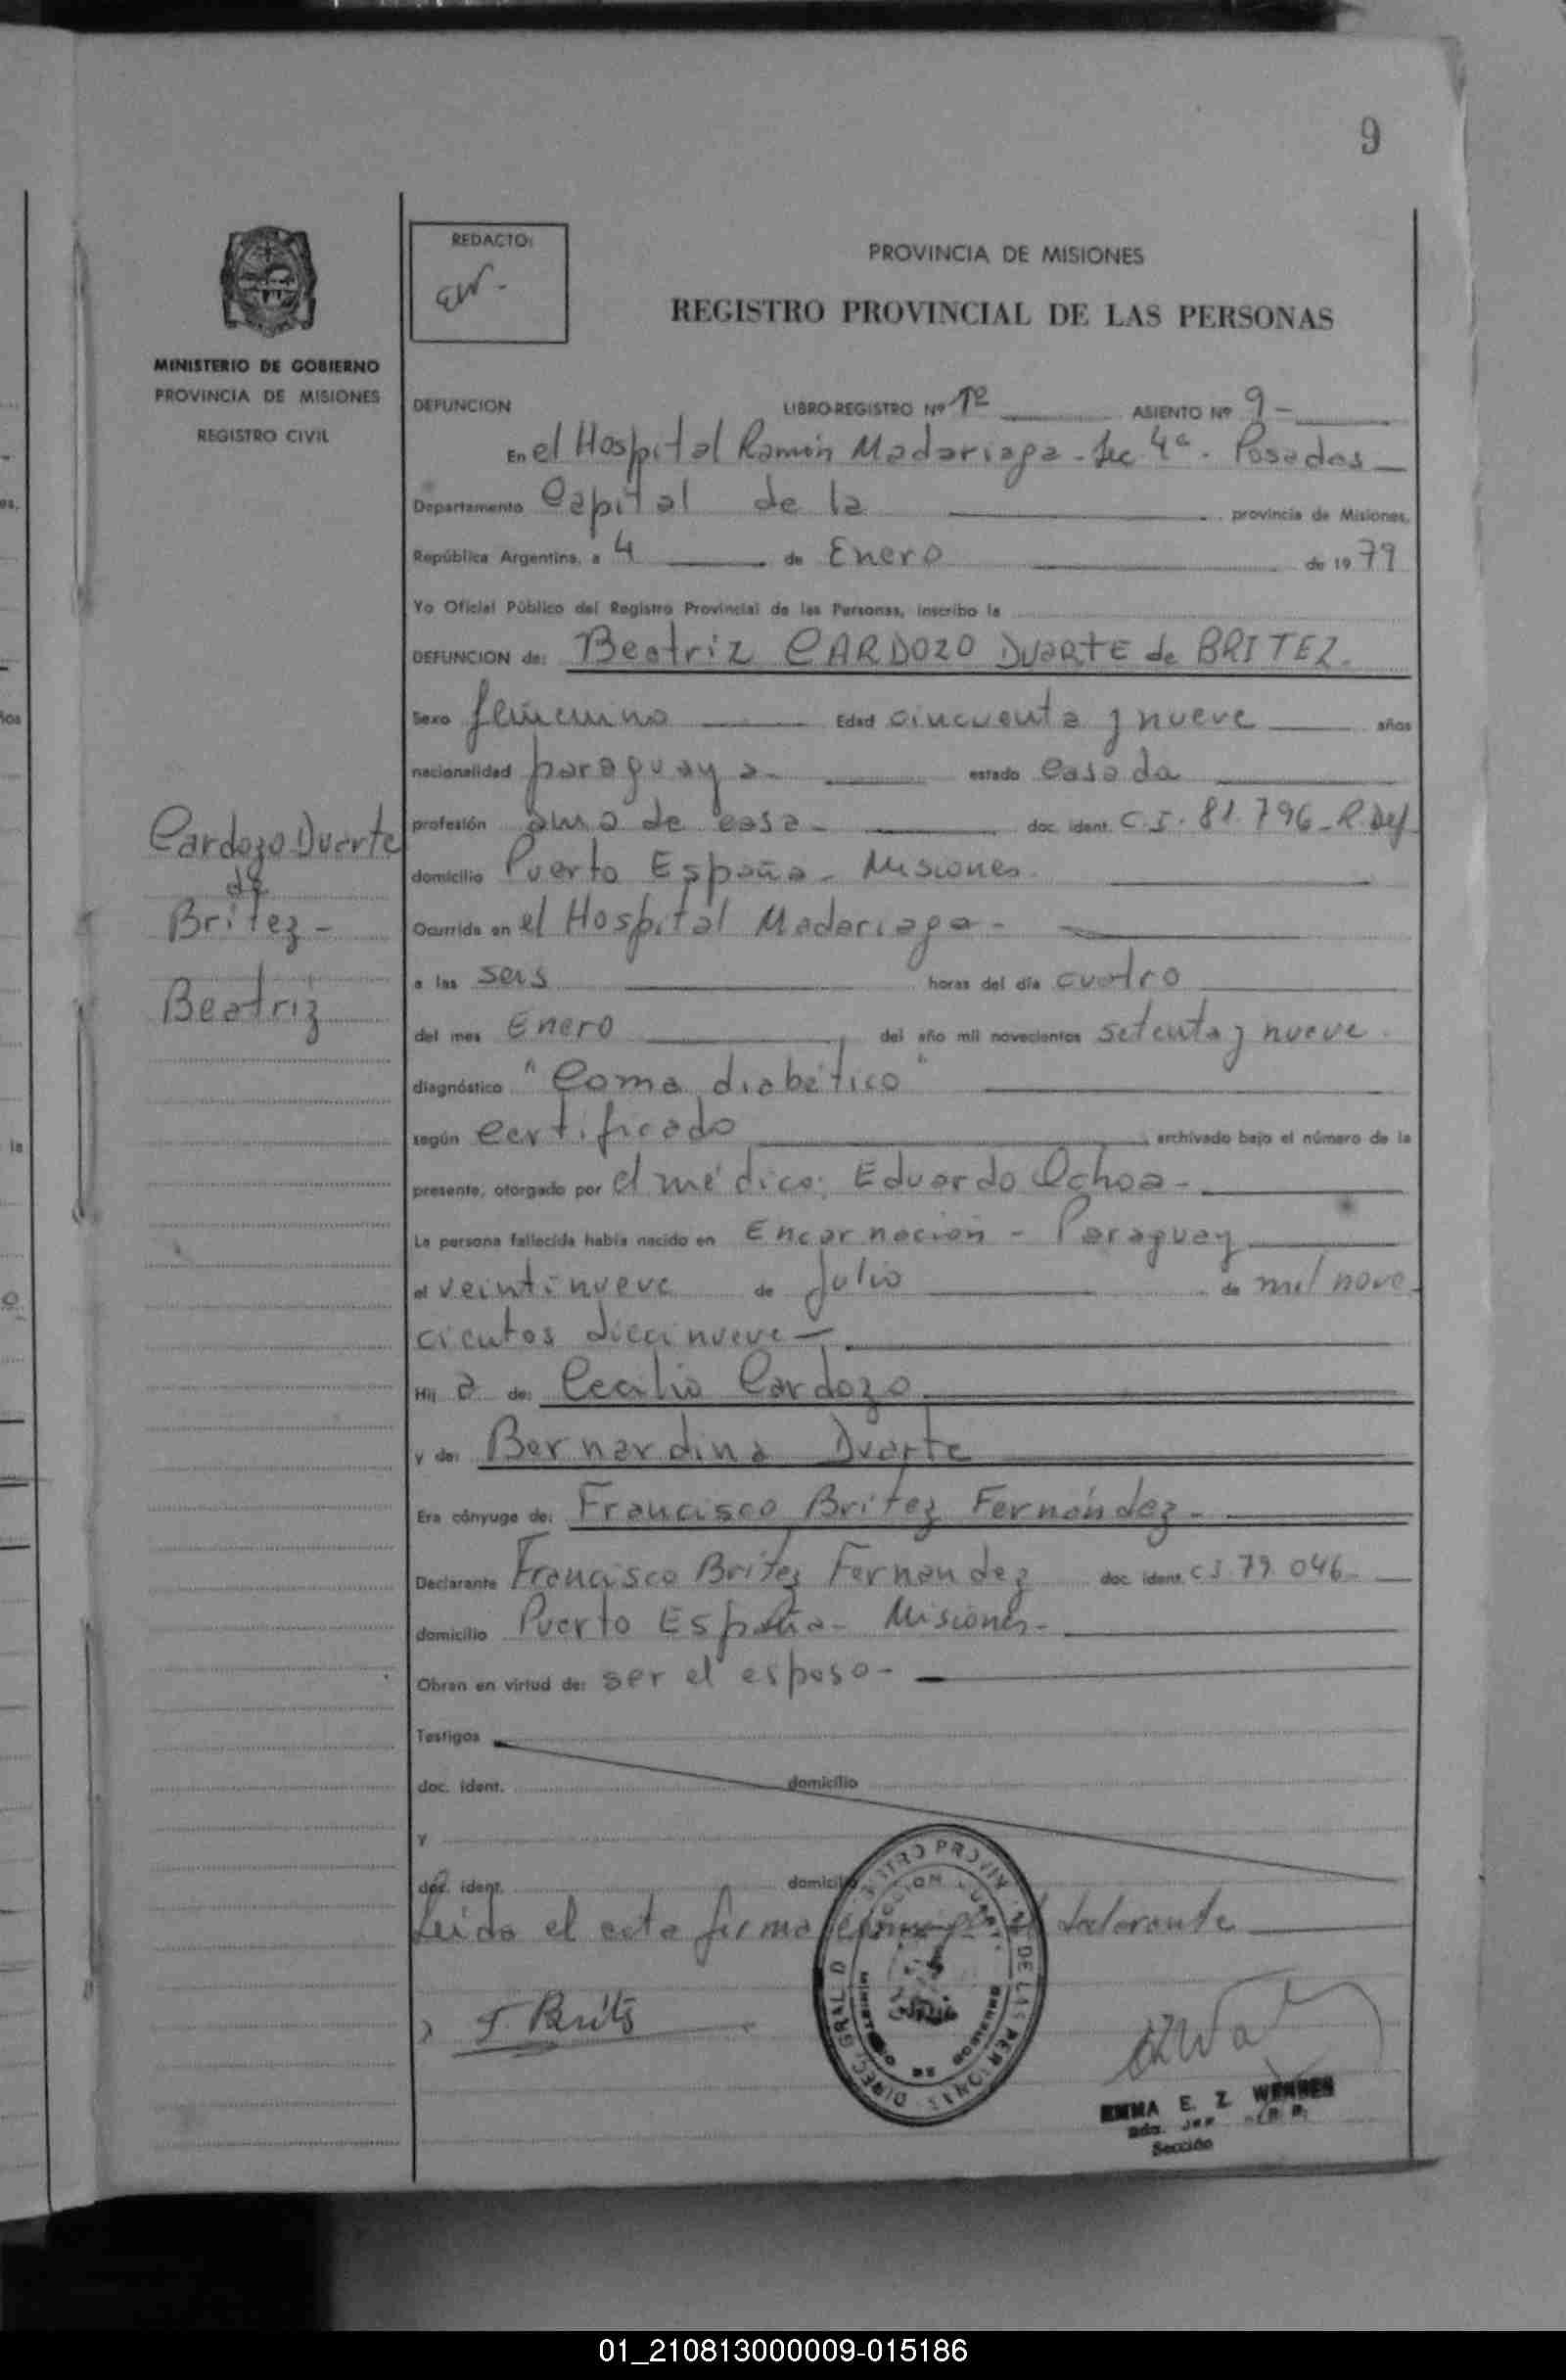 9
MINISTERIO DE GOBIERNO
PROVINCIA DE MISIONES
REGISTRO CIVIL
REDACTO:
PROVINCIA DE MISIONES
REGISTRO PROVINCIAL DE LAS PERSONAS
DEFUNCION LIBRO-REGISTRO Nº 1º ASIENTO Nº 9-
En el Hospital Ramón Madariaga - Sec 4ª - Posadas
Departamento Capital de la provincia de Misiones,
República Argentina, a 4 de Enero de 1979
Yo Oficial Público del Registro Provincial de las Personas, inscribo la
DEFUNCION de: Beatriz CARDOZO DUARTE de BRITEZ.
Sexo femenino Edad cincuenta y nueve años
nacionalidad paraguaya- estado casada
profesión ama de casa- doc. ident. C.I. 81.796-R.Def
domicilio Puerto España - Misiones.
Ocurrida en el Hospital Madariaga-
a las seis horas del día cuatro
del mes Enero del año mil novecientos setenta y nueve.
diagnóstico "Coma diabético"
según certificado, archivado bajo el número de la
presente, otorgado por el médico: Eduardo Ochoa-
La persona fallecida había nacido en Encarnación - Paraguay
el veintinueve de Julio de mil nove-
cientos diecinueve-
Hij a de: Cecilio Cardozo
y de: Bernardina Duarte
Era cónyuge de: Francisco Britez Fernández-
Declarante Francisco Britez Fernandez doc. ident. C I 79.046-
domicilio Puerto España - Misiones-
Obran en virtud de: ser el esposo-
Testigos
doc. ident. domicilio
y
doc. ident. domicilio
Leida el acta firma el declarante
F. Brits
Cardozo Duarte
de
Britez-
Beatriz
EMMA E. Z. WERNER
Sección
01_210813000009-015186